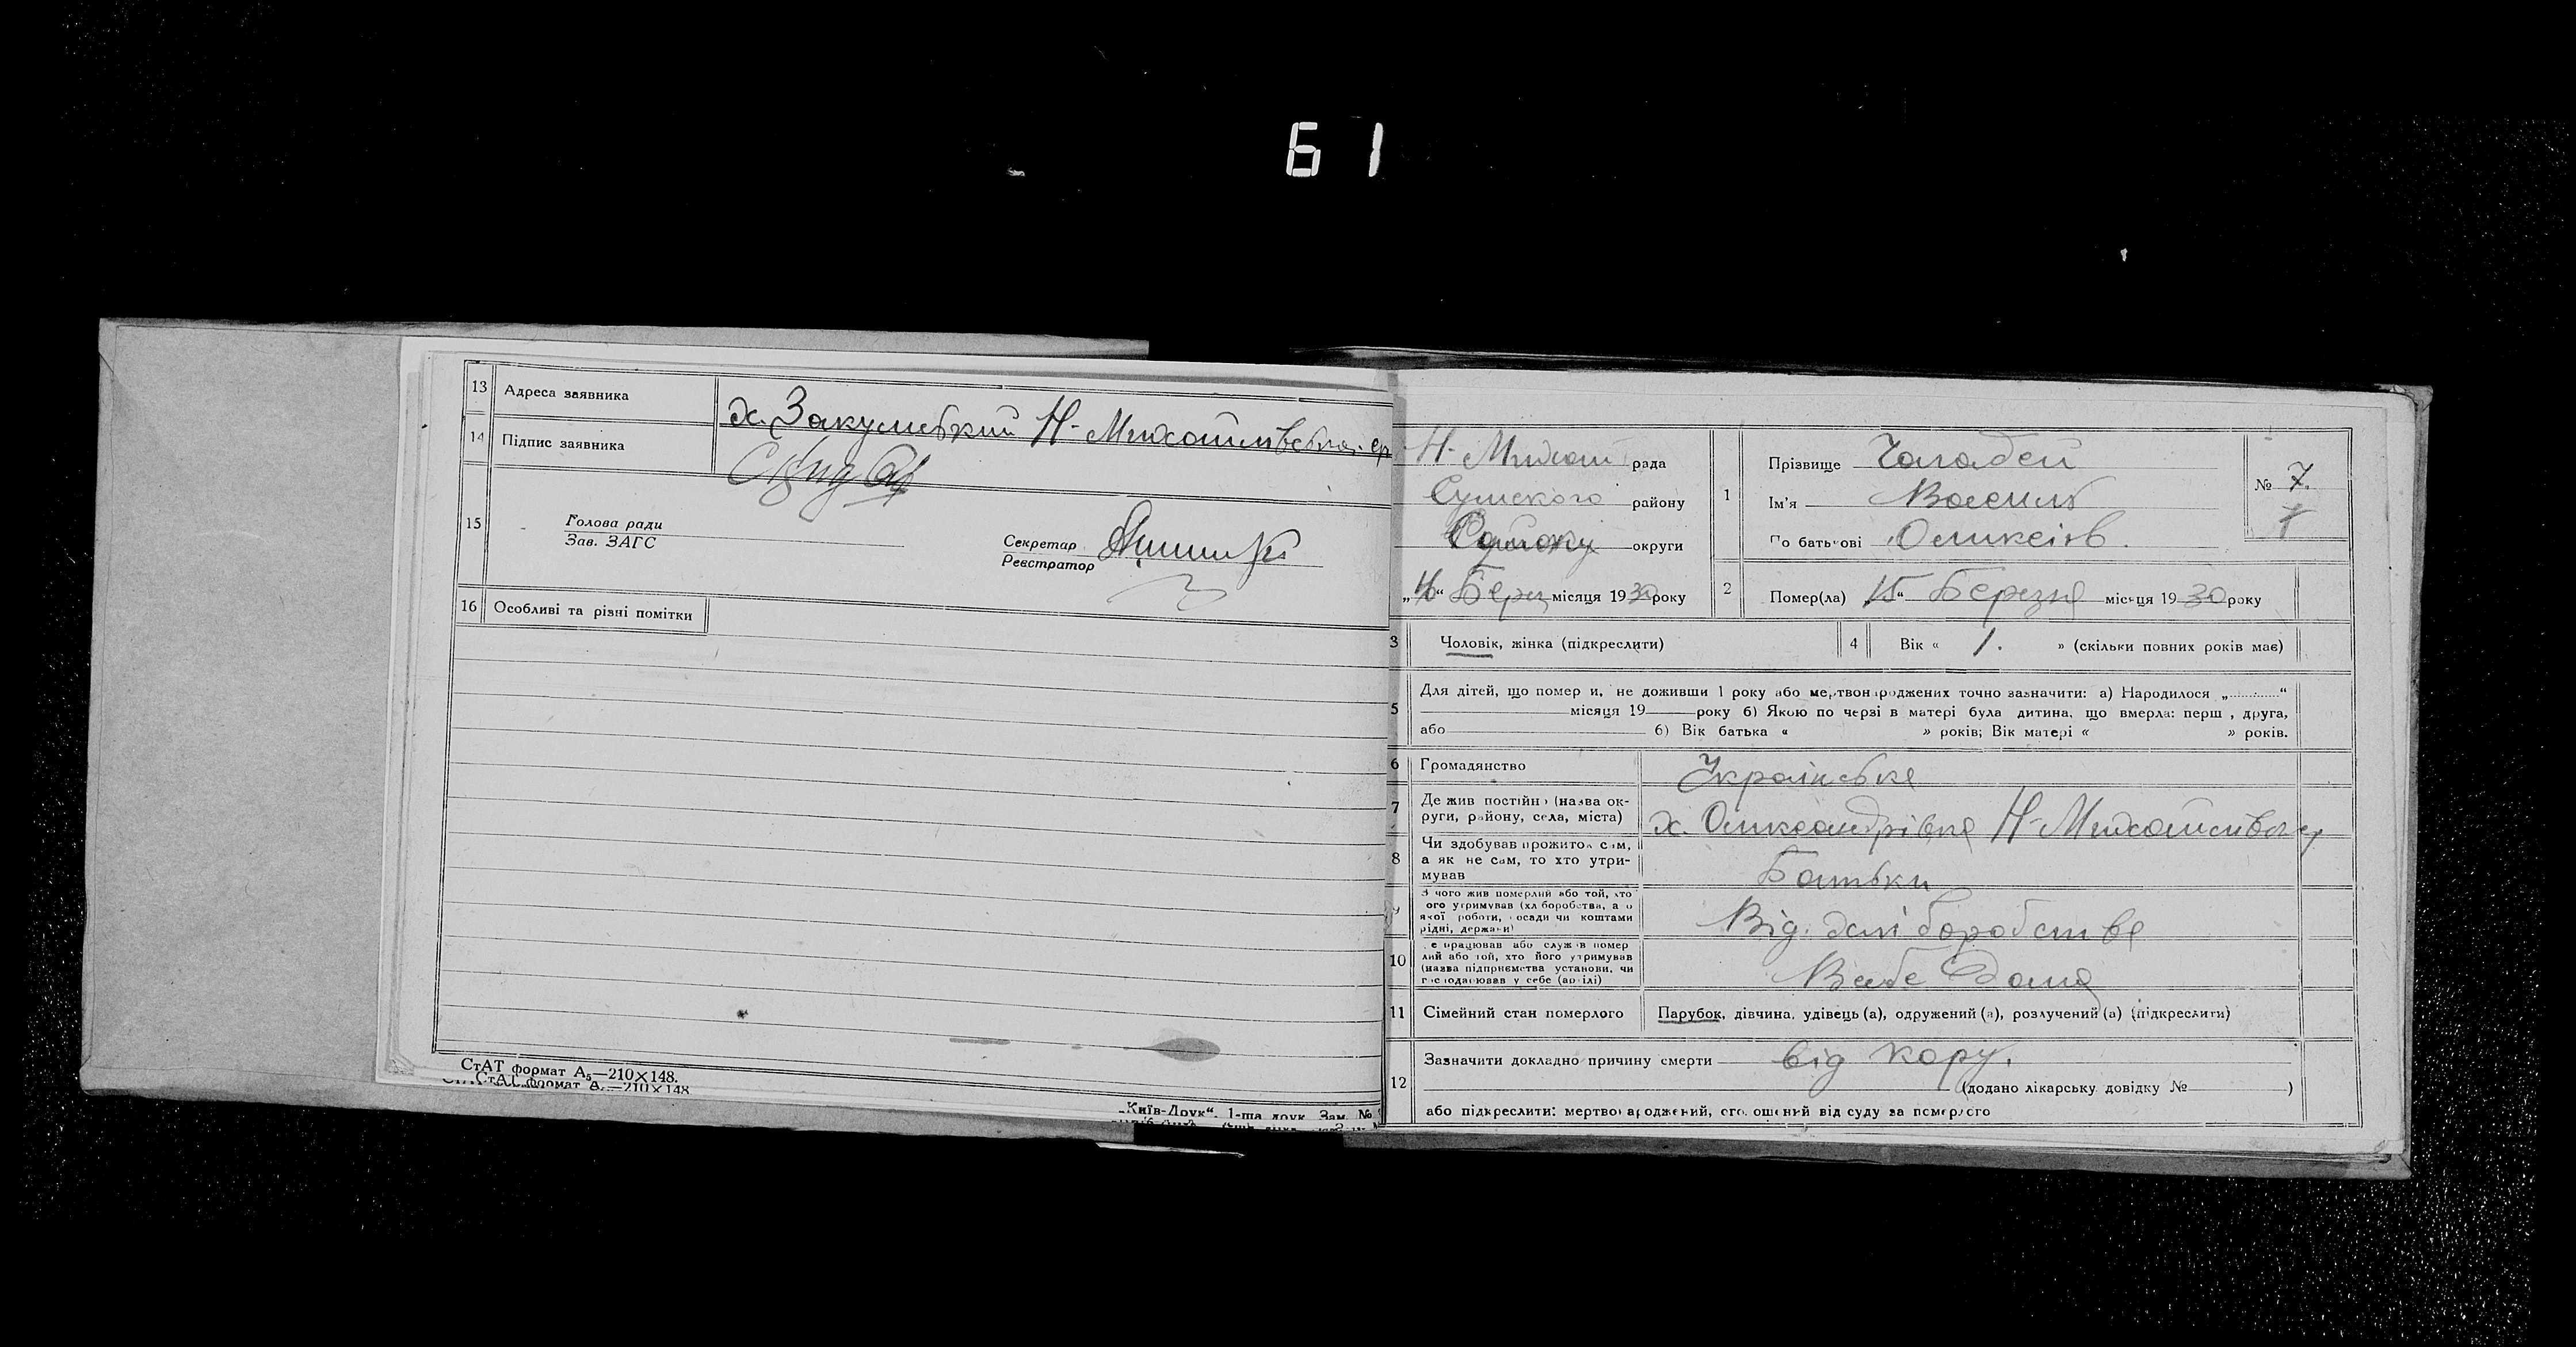 61
13 Адреса заявника х. Закумський Н-Михайлівська ср
14 Підпис заявника
15 Голова ради
Зав. ЗАГС
Секретар
Реєстратор
16 Особливі та різні помітки
СтАТ формат А₅—210×148.
СтАТ формат А₅—210×148
„Київ-Друк“, 1-ша друк. Зам. №
Н-Михайл рада
Сумського району
округи
„16“ Берез місяця 1930 року
1 Прізвище Чалабей
Ім'я Василь
По батькові Оликсіїв.
№ 7.
2 Помер(ла) „15“ Березня місяця 1930 року
3 Чоловік, жінка (підкреслити)
4 Вік « 1. » (скільки повних років має)
5 Для дітей, що померли, не доживши 1 року або мертвонароджених точно зазначити: а) Народилося „..........“
місяця 19 року б) Якою по черзі в матері була дитина, що вмерла: перша, друга,
або б) Вік батька « » років; Вік матері « » років.
6 Громадянство Українське
7 Де жив постійно (назва округи, району, села, міста) х. Олександрівка Н-Михайлівської ср
8 Чи здобував прожиток сам,
а як не сам, то хто утри-
мував Батьки
9 З чого жив померлий або той, хто
його утримував (хліборобства, а о
якої роботи, посади чи коштами
рідні, держави) Від хліборобства
10 Де працював або служив помер
лий або той, хто його утримував
(назва підприємства установи, чи
господарював у себе (ар ілі) В себе Дома
11 Сімейний стан померлого Парубок, дівчина, удівець (а), одружений (а), розлучений (а) (підкреслити)
12 Зазначити докладно причину смерти від кору.
(додано лікарську довідку № )
або підкреслити: мертвонароджений, оголошений від суду за померлого